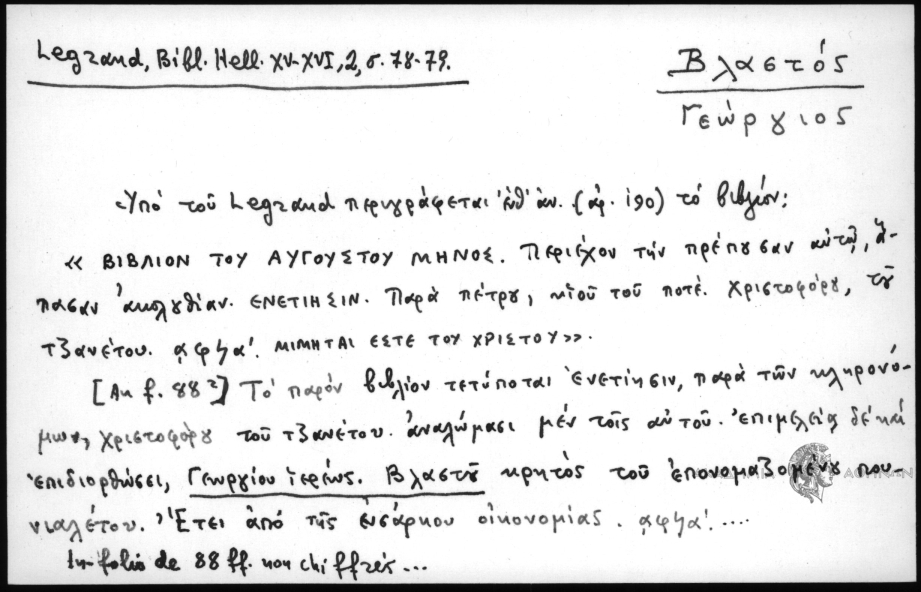 Legrand, Bibl. Hell. XV-XVI, 2, σ. 78-79.
Βλαστός
Γεώργιος
Ὑπό τοῦ Legrand περιγράφεται ὑπ' ἀν. (ἀρ. 190) τό βιβλίον:
« ΒΙΒΛΙΟΝ ΤΟΥ ΑΥΓΟΥΣΤΟΥ ΜΗΝΟΣ. Περιέχον τήν πρέπουσαν αὐτῷ, ἅ-
πασαν ἀκολουθίαν. ΕΝΕΤΙΗΣΙΝ. Παρά πέτρου, υἱοῦ τοῦ ποτέ. Χριστοφόρου, τοῦ
τζανέτου. ͵αφϟα'. ΜΙΜΗΤΑΙ ΕΣΤΕ ΤΟΥ ΧΡΙΣΤΟΥ».
[Au f. 88²] Τό παρόν βιβλίον τετύπωται Ἐνετίησιν, παρά τῶν κληρονό-
μων, χριστοφόρου τοῦ τζανέτου. ἀναλώμασι μέν τοῖς αὐτοῦ. ἐπιμελείᾳ δέ καί
ἐπιδιορθώσει, Γεωργίου ἱερέως. Βλαστοῦ κρητός τοῦ ἐπονομαζομένου που-
νιαλέτου. Ἔτει ἀπό τῆς ἐνσάρκου οἰκονομίας. ͵αφϟα'. ....
In-folio de 88 ff. non chiffrés...